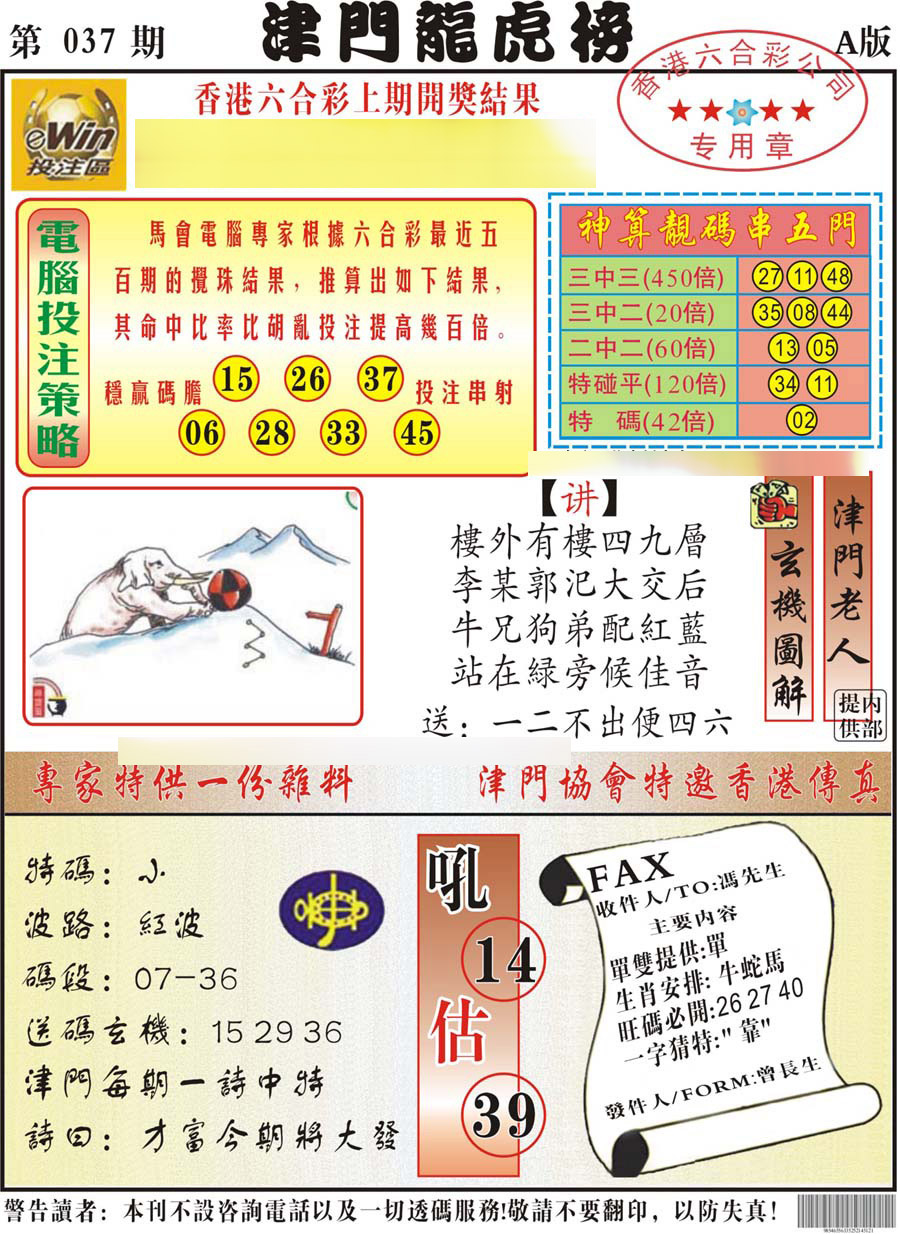 第 037 期
津門龍虎榜
A版
香港六合彩公司
专用章
eWin
投注區
香港六合彩上期開獎結果
電腦投注策略
馬會電腦專家根據六合彩最近五
百期的攪珠結果，推算出如下結果，
其命中比率比胡亂投注提高幾百倍。
穩贏碼膽 15 26 37 投注串射
06 28 33 45
神算靚碼串五門
三中三(450倍) 27 11 48
三中二(20倍) 35 08 44
二中二(60倍) 13 05
特碰平(120倍) 34 11
特 碼(42倍) 02
【讲】
樓外有樓四九層
李某郭汜大交后
牛兄狗弟配紅藍
站在緑旁候佳音
送：一二不出便四六
玄機圖解
津門老人
内部提供
專家特供一份雜料
津門協會特邀香港傳真
特碼：小
波路：紅波
碼段：07-36
送碼玄機：15 29 36
津門每期一詩中特
詩曰：才富今期將大發
吼
14
估
39
FAX
收件人/TO:馮先生
主要内容
單雙提供:單
生肖安排: 牛蛇馬
旺碼必開:26 27 40
一字猜特:" 靠"
發件人/FORM:曾長生
警告讀者：本刊不設咨詢電話以及一切透碼服務!敬請不要翻印，以防失真!